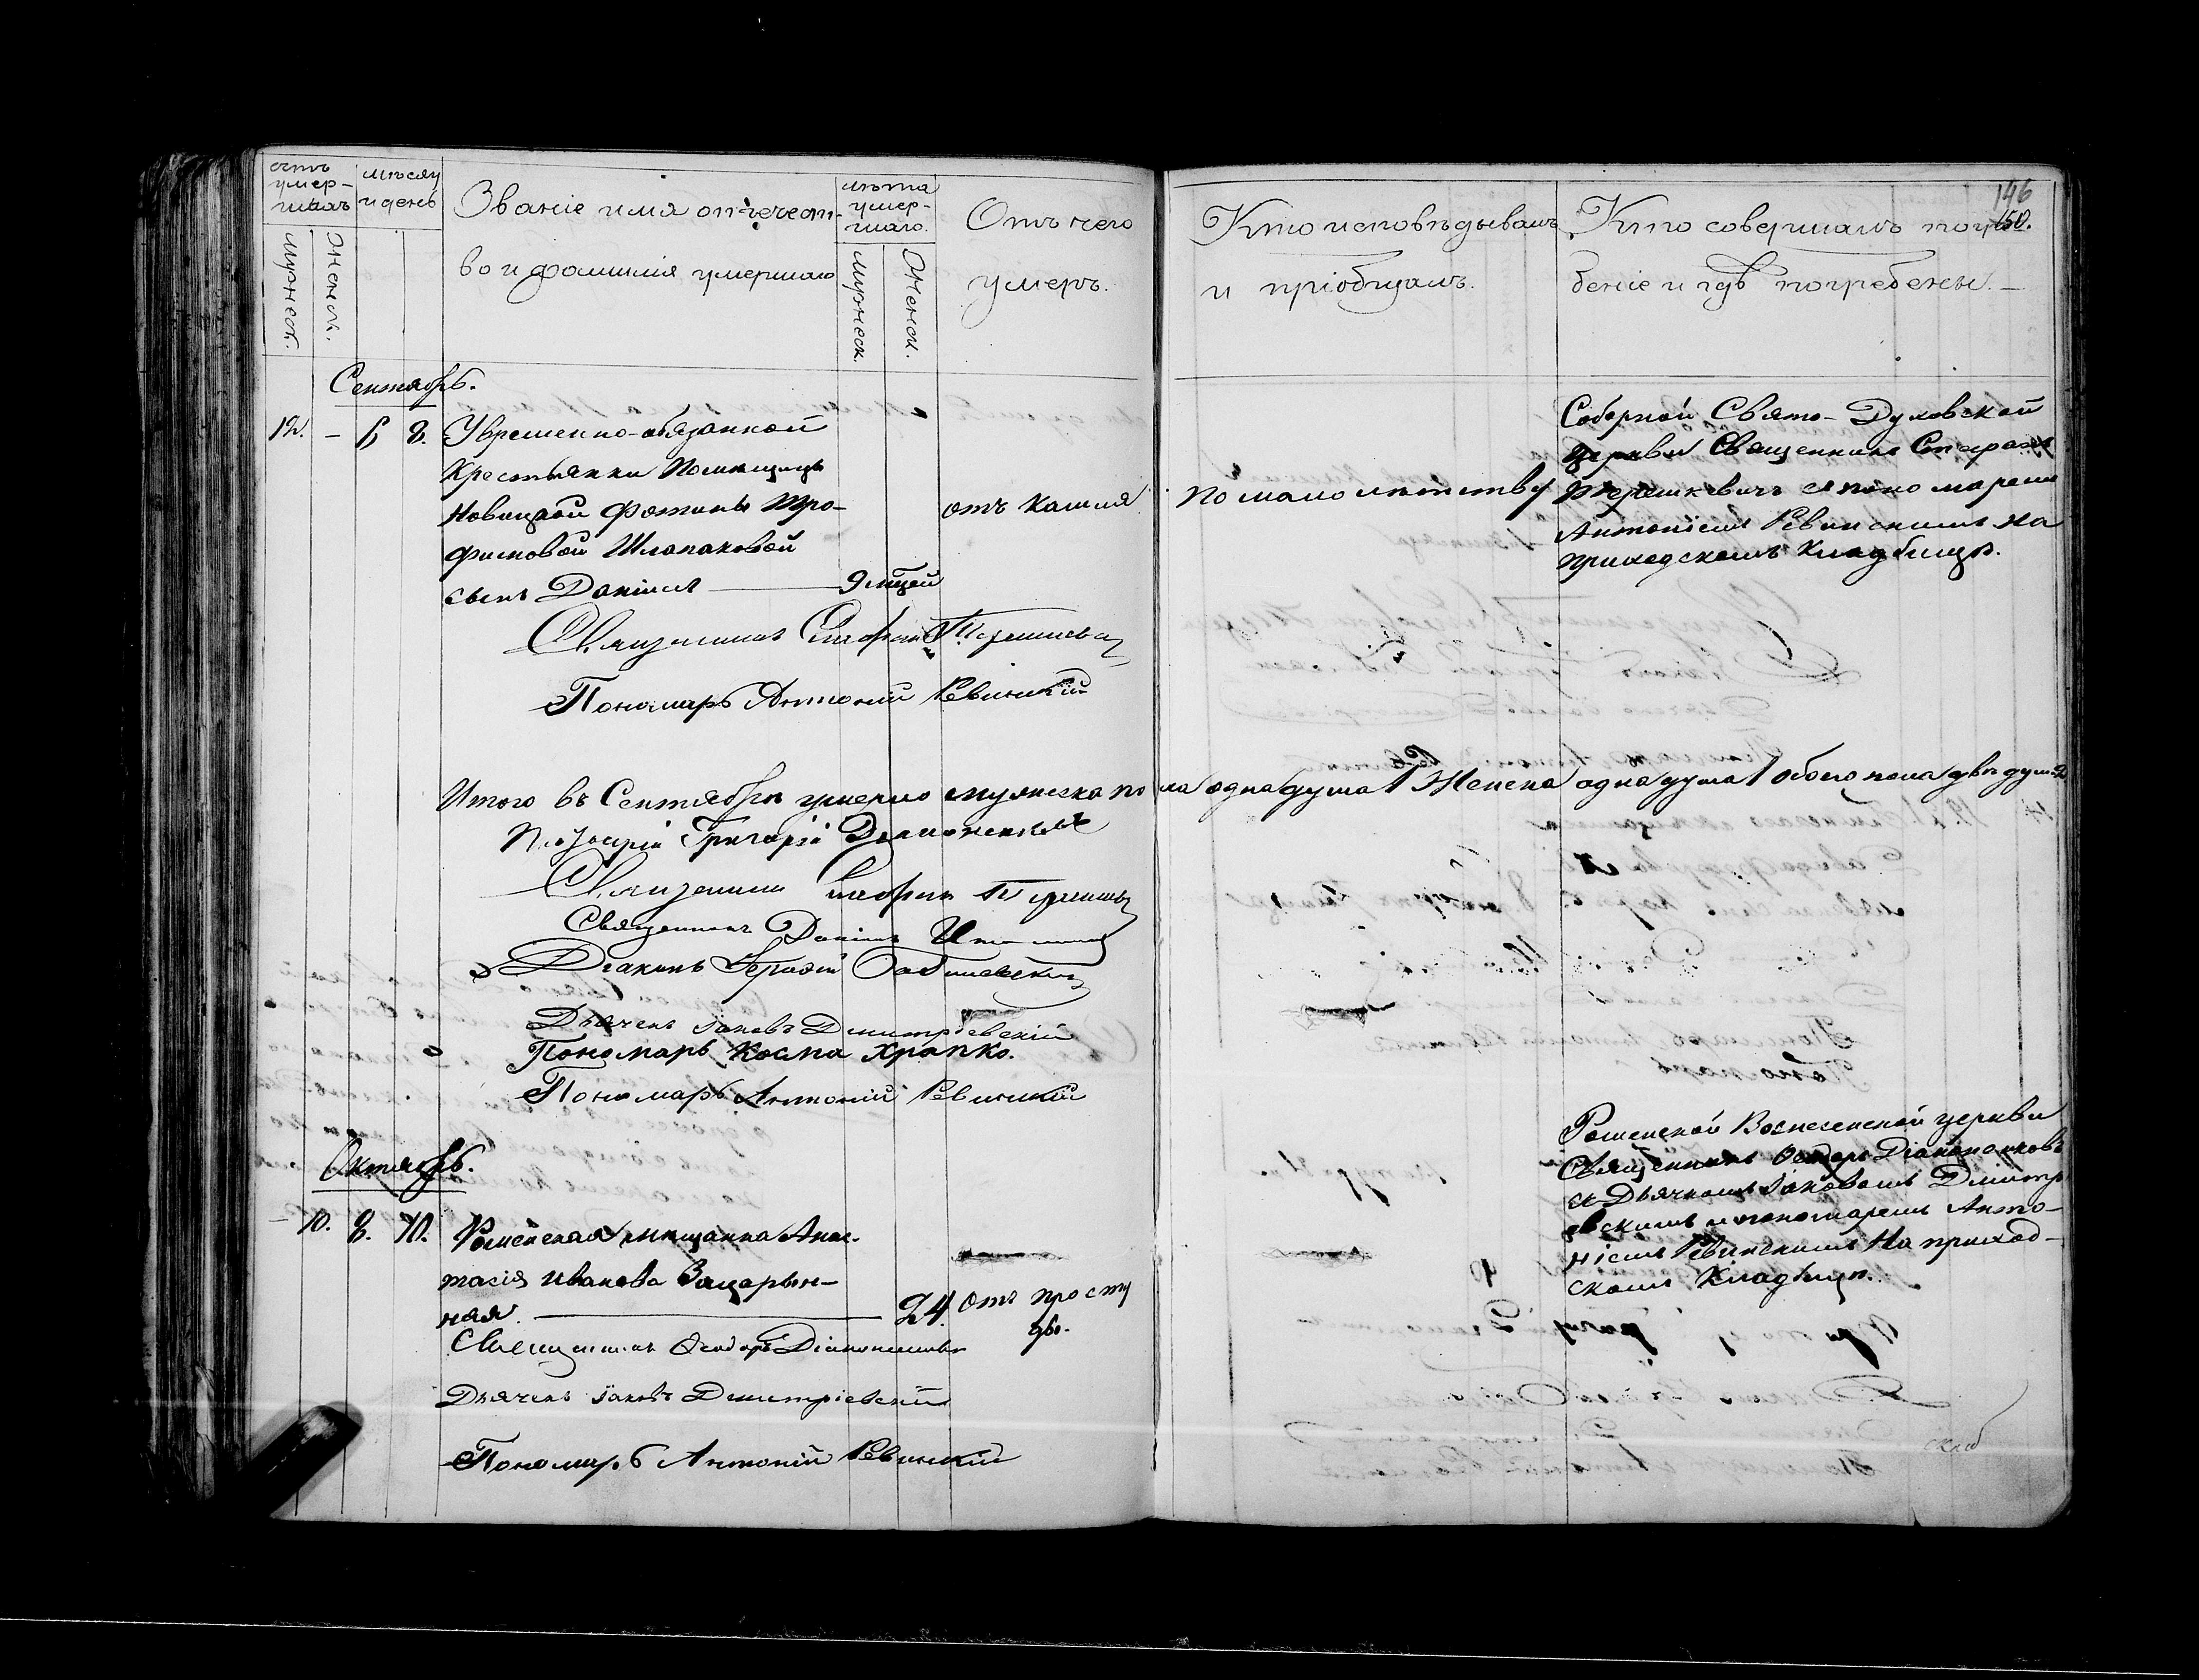 счетъ умер-
шихъ
мѣсяц
и день
Званіе имя отечест-
во и фамилія умершаго
лѣта
умер-
шаго.
Отъ чего
умеръ.
Кто исповѣдывалъ
и пріобщалъ.
Кто совершалъ погре
беніе и гдѣ погребены.
146
150.
мужеск.
женск.
мужеск.
женск.
Сентябрь.
12. – 6 8. У временно-обязанной
крестьянки помѣщицы
Новицкой Фотины Тро-
фимовой Шлапаковой
сынъ Даніилъ 9 мѣцей
отъ кашля
по малолѣтству
Соборной Свято-Духовской
церкви Священникъ Стефанъ
Терешкевичъ съ пономаремъ
Антоніемъ Ревинскимъ на
приходскомъ кладбищѣ.
Священникъ Стефанъ Терешкевич
Пономарь Антоній Ревинскій
Итого въ Сентябрѣ умерло мужеска пола одна душа 1 Женска одна душа 1 обоего пола двѣ души 2
Григорій
Священникъ Стефанъ Терешкевич
Священникъ Даніилъ
Діаконъ
Дьячекъ Іаковъ Дмитріевскій
Пономарь Косма Храпко.
Пономарь Антоній Ревинскій
Октябрь.
– 10. 8. 10. Роменская мѣщанка Анас-
тасія Иванова Зацарин-
ная. 24. Отъ просту
ды.
Роменской Вознесенской церкви
Священникъ Ѳеодоръ
съ Дьячкомъ Іаковомъ Дмитрі
евскимъ и пономаремъ Анто-
ніемъ Ревинскимъ На приход-
скомъ Кладбищѣ.
Священникъ Ѳеодоръ
Дьячекъ Іаковъ Дмитріевскій
Пономарь Антоній Ревинскій